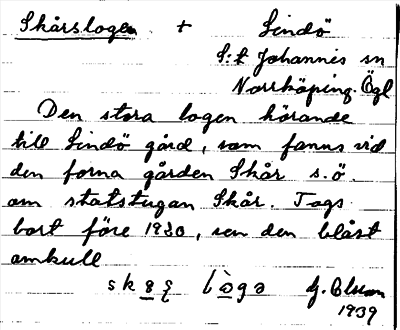 Skårslogen + Lindö
S:t Johannes sn
Norrköping. Ögl
Den stora logen hörande
till Lindö gård, som fanns vid
den forna gården Skår s.ö.
om statstugan Skår. Togs
bort före 1920, sen den blåst
omkull
G. Olsson
1939